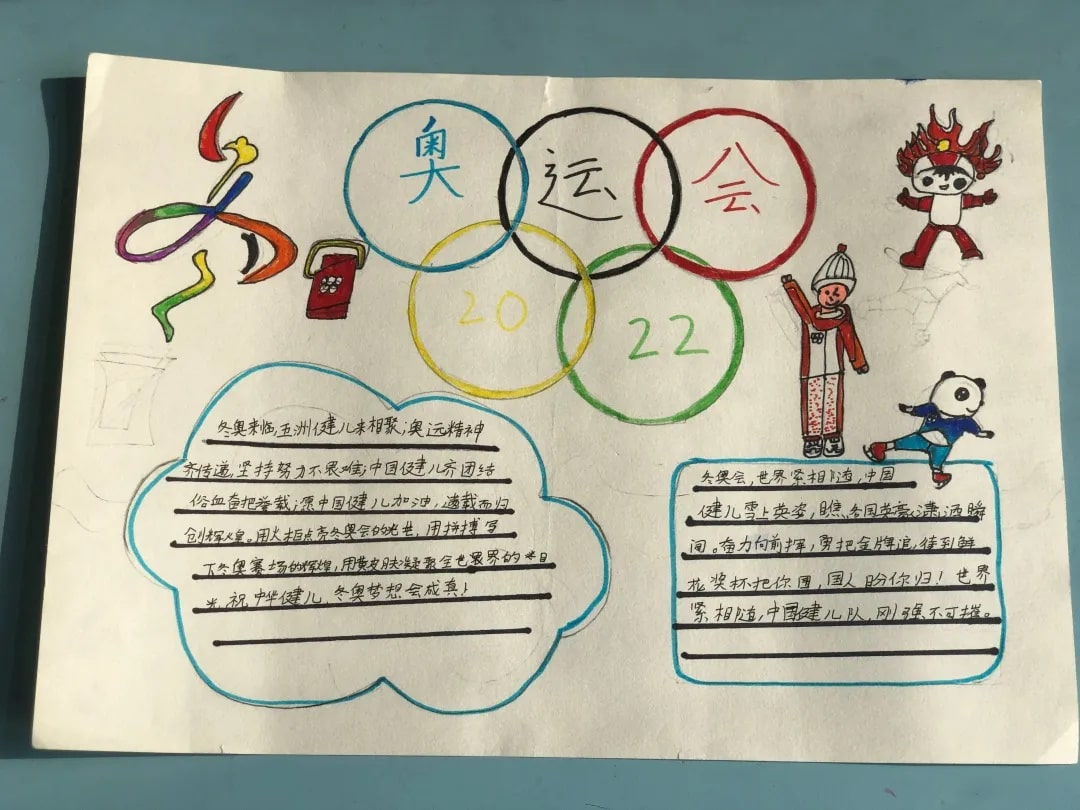 奥 运 会
20 22
冬奥来临,五洲健儿来相聚;奥远精神
齐传递,坚持努力不畏难;中国健儿齐团结
俗血奋把誉载;愿中国健儿加冲,遒载而归
创辉煌。用火炬点亮冬奥会的光芒,用拼搏写
下冬奥赛场的辉煌,用黄皮肤凝聚全世界的目
光,祝中华健儿,冬奥梦想会成真!
冬奥会,世界紧相随,中国
健儿雪上英姿,瞧各国英豪潇洒瞬
间。奋力向前挥,勇把金牌追,待到鲜
花奖杯把你围,国人盼你归!世界
紧相随,中国健儿队,刚强不可摧。